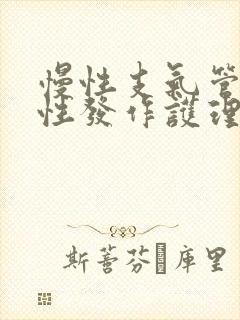 慢性支氣管
性發作護理
斯蓍芬·庫里